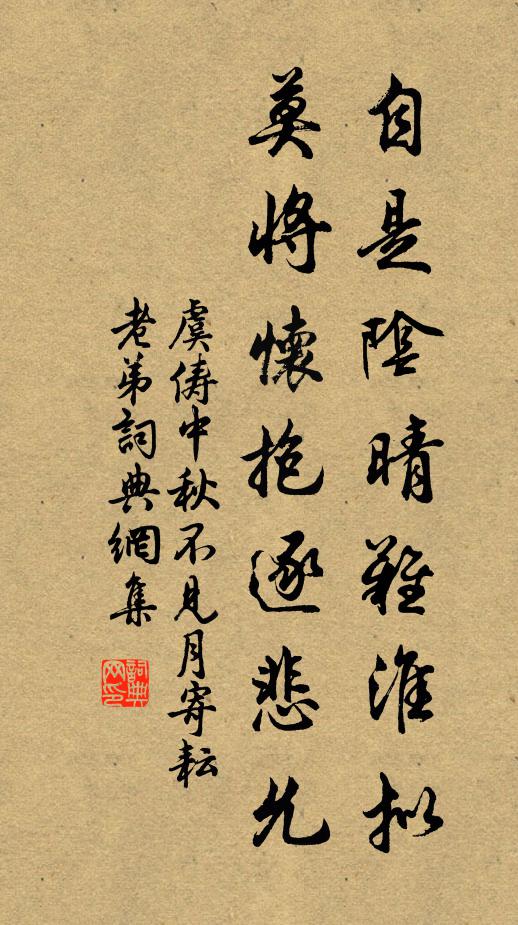 自是陰晴難准拟
莫將懷抱逐悲
虞儔中秋不見月寄耘
老弟詞典網集
詞典
网印